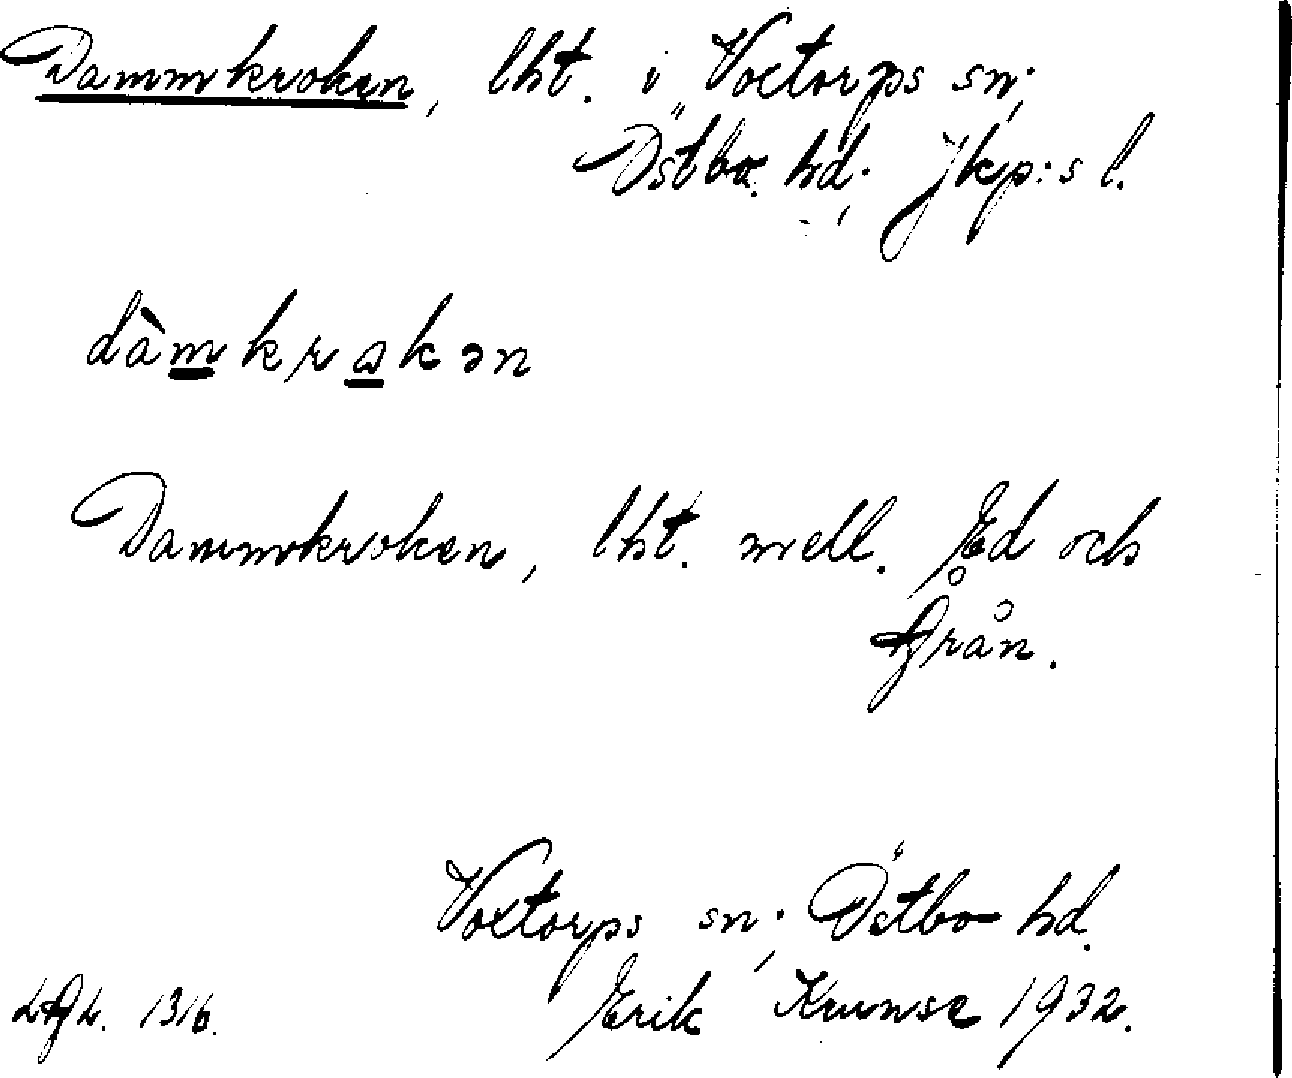 Dammkroken, lht. i Voxtorps sn;
Östbo hd; Jkp:s l.
dàmkrakən
Dammkroken, lht. mell. Ed och
Grån.
Voxtorps sn; Östbo hd.
Erik 1932.
LGL. 1316.